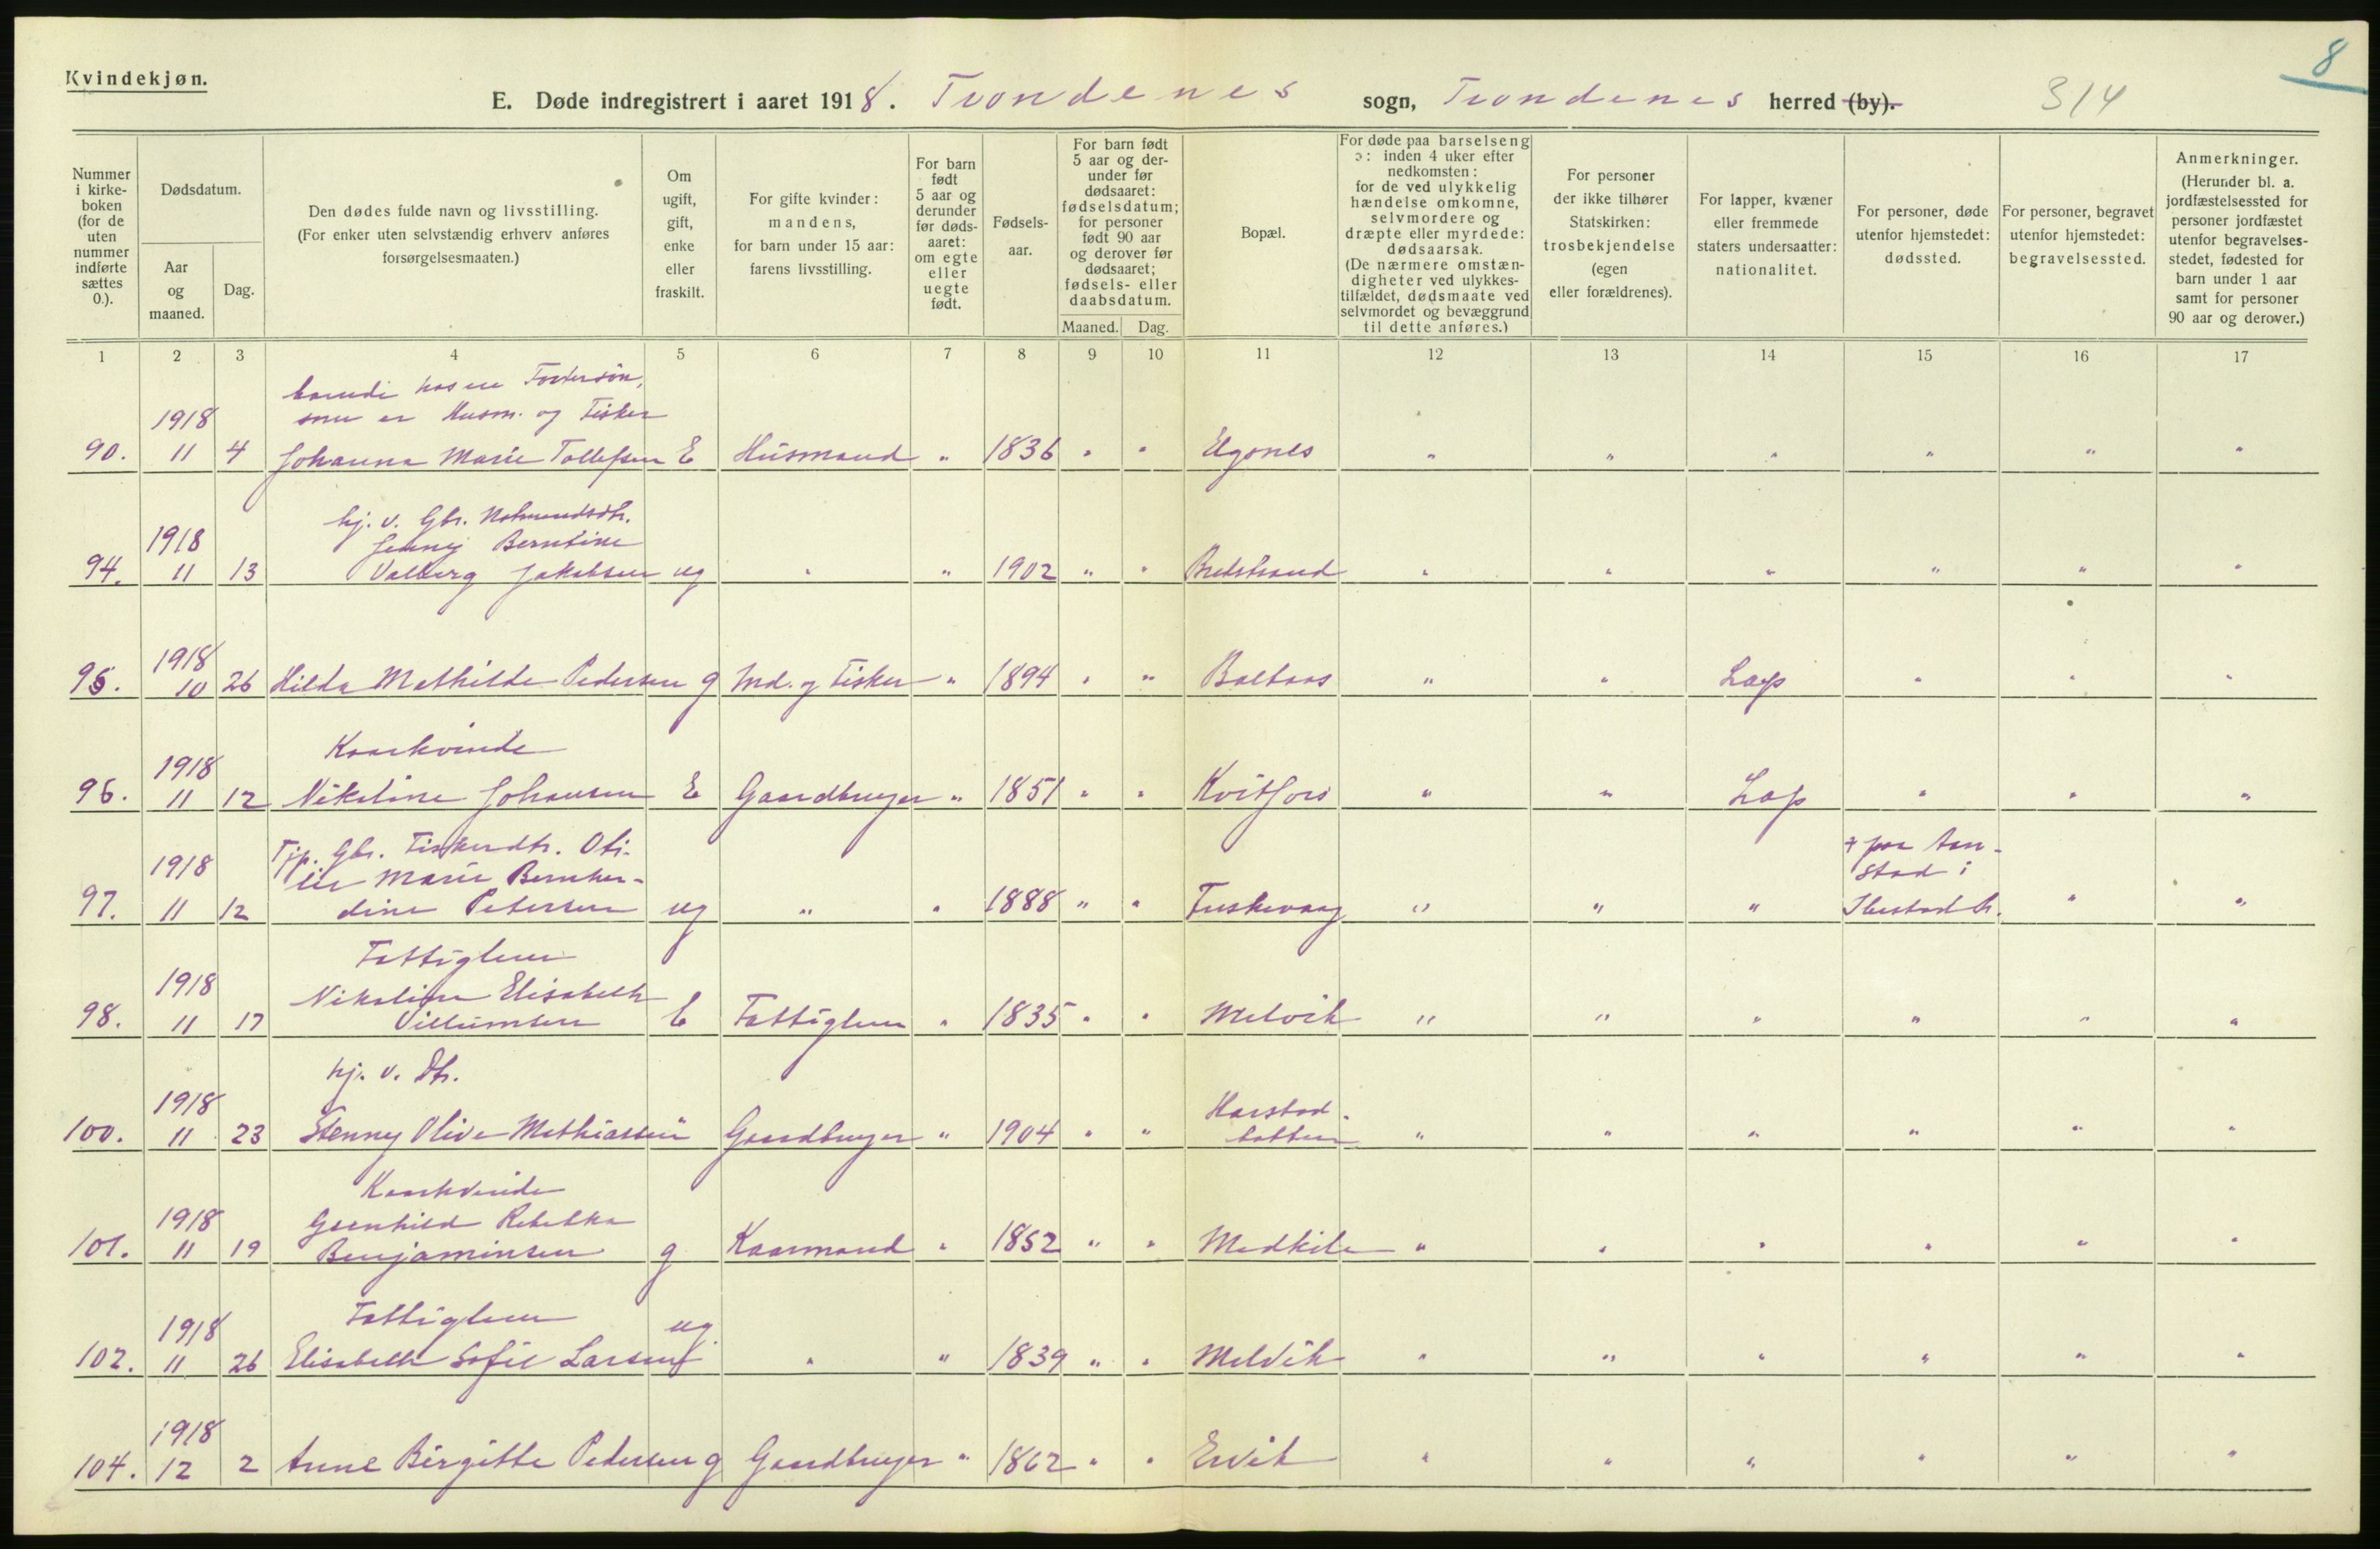 8
Kvindekjøn.
E. Døde indregistrert i aaret 1918. Trondenes sogn, Trondenes herred (by). 314
Nummer i kirkeboken (for de uten nummer indførte sættes 0.).
Dødsdatum.
Aar og maaned.
Dag.
Den dødes fulde navn og livsstilling.
(For enker uten selvstændig erhverv anføres forsørgelsesmaaten.)
Om ugift, gift, enke eller fraskilt.
For gifte kvinder: mandens, for barn under 15 aar: farens livsstilling.
For barn født 5 aar og derunder før dødsaaret: om egte eller uegte født.
Fødselsaar.
For barn født 5 aar og derunder før dødsaaret: fødselsdatum; for personer født 90 aar og derover før dødsaaret; fødsels- eller daabsdatum.
Maaned. Dag.
Bopæl.
For døde paa barselseng ɔ: inden 4 uker efter nedkomsten: for de ved ulykkelig hændelse omkomne, selvmordere og dræpte eller myrdede: dødsaarsak. (De nærmere omstændigheter ved ulykkestilfældet, dødsmaate ved selvmordet og bevæggrund til dette anføres.)
For personer der ikke tilhører Statskirken: trosbekjendelse (egen eller forældrenes).
For lapper, kvæner eller fremmede staters undersaatter: nationalitet.
For personer, døde utenfor hjemstedet: dødssted.
For personer, begravet utenfor hjemstedet: begravelsessted.
Anmerkninger. (Herunder bl. a. jordfæstelsessted for personer jordfæstet utenfor begravelsesstedet, fødested for barn under 1 aar samt for personer 90 aar og derover.)
1 2 3 4 5 6 7 8 9 10 11 12 13 14 15 16 17
hos en
1918 som er Husm. og Fisker
90. 11 4 Johanna Marie Tollefsen E Husmand " 1836 " " Elgsnes " " " " " "
hj. v. Gbr.
1918 Jenny Berntine
94. 11 13 Valborg Jakobsen ug " " 1902 " " " " " " " "
1918
95. 10 26 Hilda Mathilde Pedersen g Ind. og Fisker " 1894 " " Baltaas " " Lap " " "
1918 Kaarkvinde
96. 11 12 Nikoline Johansen E Gaardbruger " 1851 " " Kvitfors " " Lap " " "
Gbr. Fiskerdtr. Oti- + paa Aan-
1918 lie Marie Bernhar- stad i
97. 11 12 dine Petersen ug " " 1888 " " Fuskevaag " " " Ibestad h. " "
Fattiglem
1918 Nikoline Elisabeth
98. 11 17 Villumsen E Fattiglem " 1835 " " Melvik " " " " " "
hj. v. Dtr.
1918 Harstad-
100. 11 23 Jenny Olive Mathiassen " Gaardbruger " 1904 " " botten " " " " " "
Kaarkvinde
1918 Gunhild Rebekka
101. 11 19 Benjaminsen g Kaarmand " 1852 " " Medkila " " " " " "
1918 Fattiglem ug.
102. 11 26 Elisabeth Sofie Larsen " " 1839 " " Melvik " " " " " "
1918
104. 12 2 Anne Birgitte Pedersen g Gaardbruger " 1862 " " Ervik " " " " " "